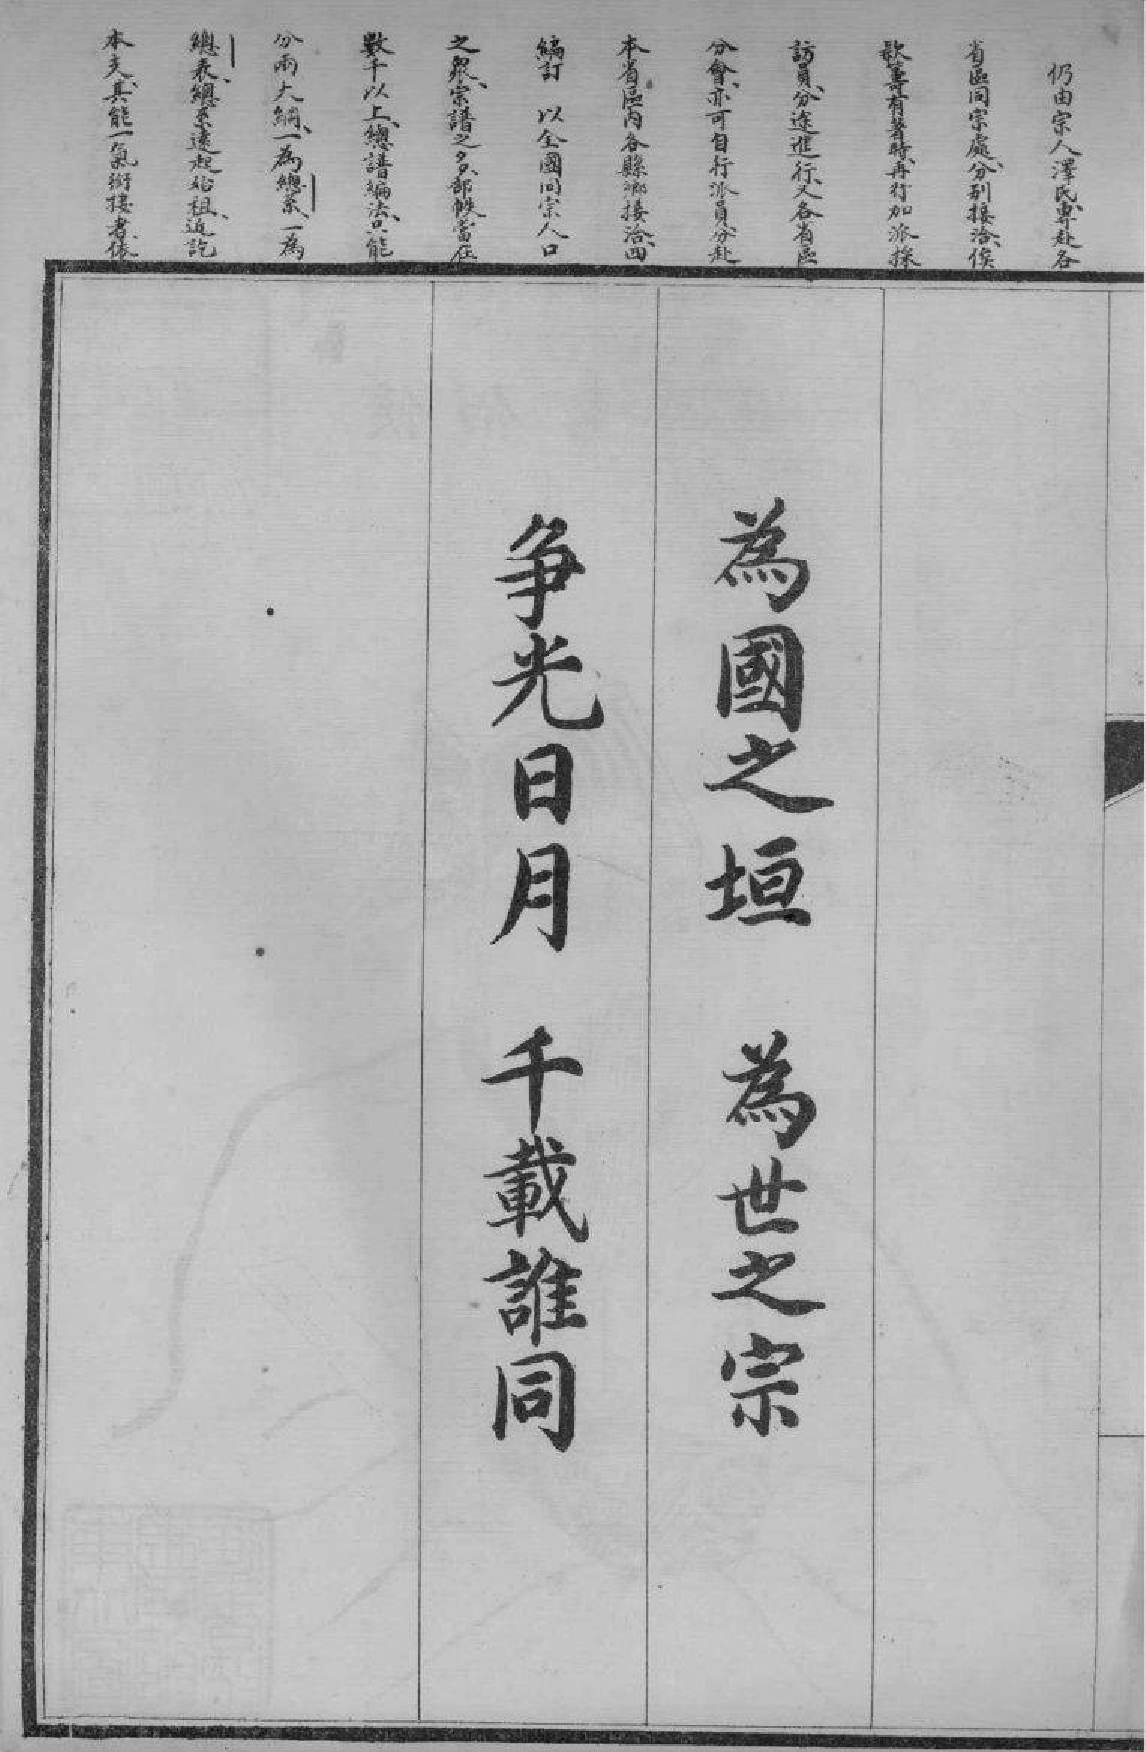 仍由宗人澤民專赴各
省區同宗處分別接洽俟
歀專有著時再行加派採
訪員分途進行又各省區
分會亦可自行派員分赴
本省區內各縣鄉接洽四
編訂 以全國同宗人口
之眾宗譜之多部帙當在
數千以上總譜編法只能
分兩大綱一為總系一為
總表總系遠起始祖近訖
本支其能一氣銜接者俵
為國之垣 為世之宗
爭光日月 千載誰同